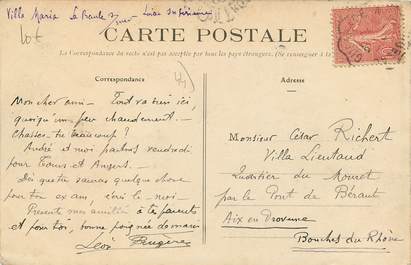 Villa Maria La Baule s/mer Loire inférieure
Lot
CARTE POSTALE
La Correspondance du recto n'est pas acceptée par tous les pays étrangers. (Se renseigner à la
Correspondance
Adresse
Mon cher ami - Tout va bien ici,
quoiqu'un peu chaudement. -
Chasses-tu beaucoup ?
André et moi partons vendredi
pour Tours et Angers.
Dès que tu sauras quelque chose
pour ton ex am, écris-le-moi -
Présente mes amitiés à tes parents
et pour toi, bonne poignée de main
Léon
Monsieur César Richert
Villa Lieutaud
Quartier du
par le Pont de Béraut
Aix en Provence
Bouches du Rhône